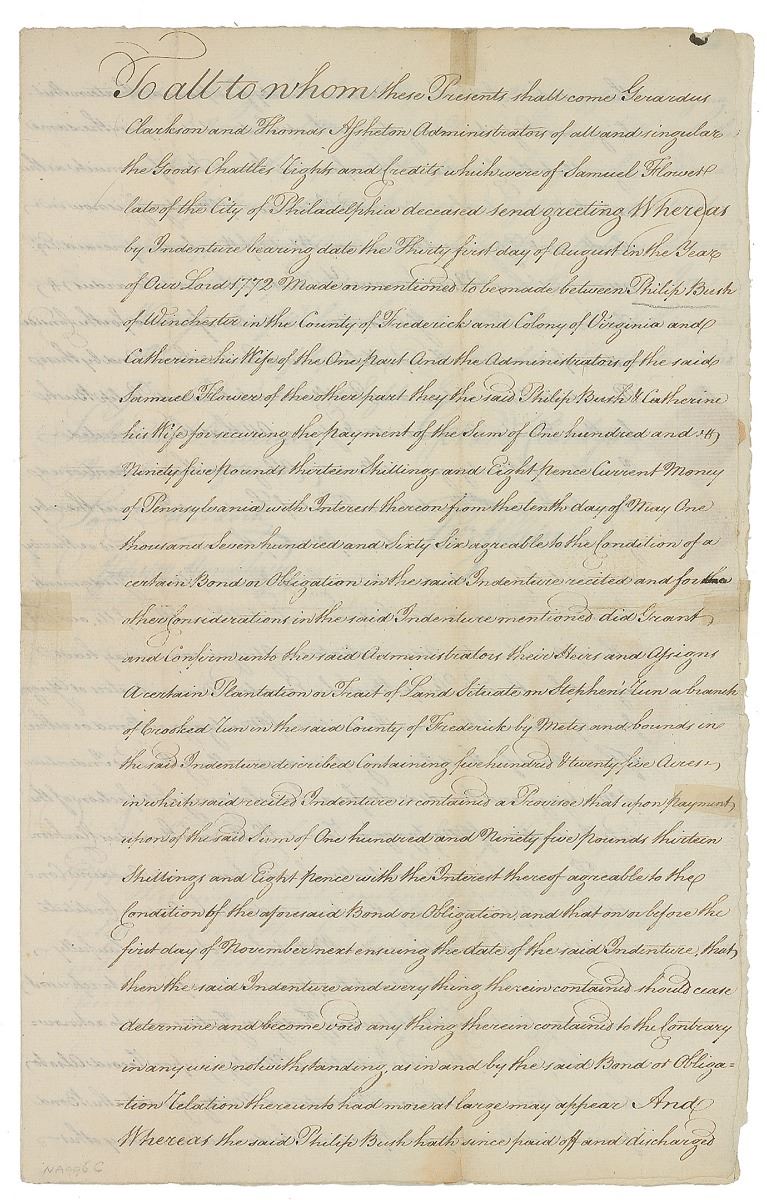 To all to whom these Presents shall come Gerardus
Clarkson and Thomas Assheton Administrators of all and singular
the Goods Chattles Rights and Credits which were of Samuel Flower
late of the City of Philadelphia deceased send greeting Whereas
by Indenture bearing date the Thirty first day of August in the Year
of Our Lord 1772 Made or mentioned to be made between Philip Bush
of Winchester in the County of Frederick and Colony of Virginia and
Catherine his Wife of the One part And the Administrators of the said
Samuel Flower of the other part they the said Philip Bush & Catherine
his Wife for securing the payment of the Sum of One hundred and
Ninety five pounds thirteen Shillings and Eight pence Current Money
of Pennsylvania with Interest thereon from the tenth day of May One
thousand Seven hundred and Sixty Six agreable to the Condition of a
certain Bond or Obligation in the said Indenture recited and for
other Considerations in the said Indenture mentioned did Grant
and Confirm unto the said Administrators their Heirs and Assigns
A certain Plantation or Tract of Land Situate on Stephen's Run a branch
of Crooked Run in the said County of Frederick by Metes and bounds in
the said Indenture described Containing five hundred & twenty five Acres
in which said recited Indenture is contained a Provisee that upon payment
upon of the said Sum of One hundred and Ninety five pounds thirteen
Shillings and Eight pence with the Interest thereof agreable to the
Condition of the aforesaid Bond or Obligation, and that on or before the
first day of November next ensuing the date of the said Indenture, that
then the said Indenture and every thing therein contained should cease
determine and become void any thing therein contained to the Contrary
in any wise notwithstanding, as in and by the said Bond or Obliga=
=tion Relation thereunto had more at large may appear And
Whereas the said Philip Bush hath since paid off and discharged
NA996C